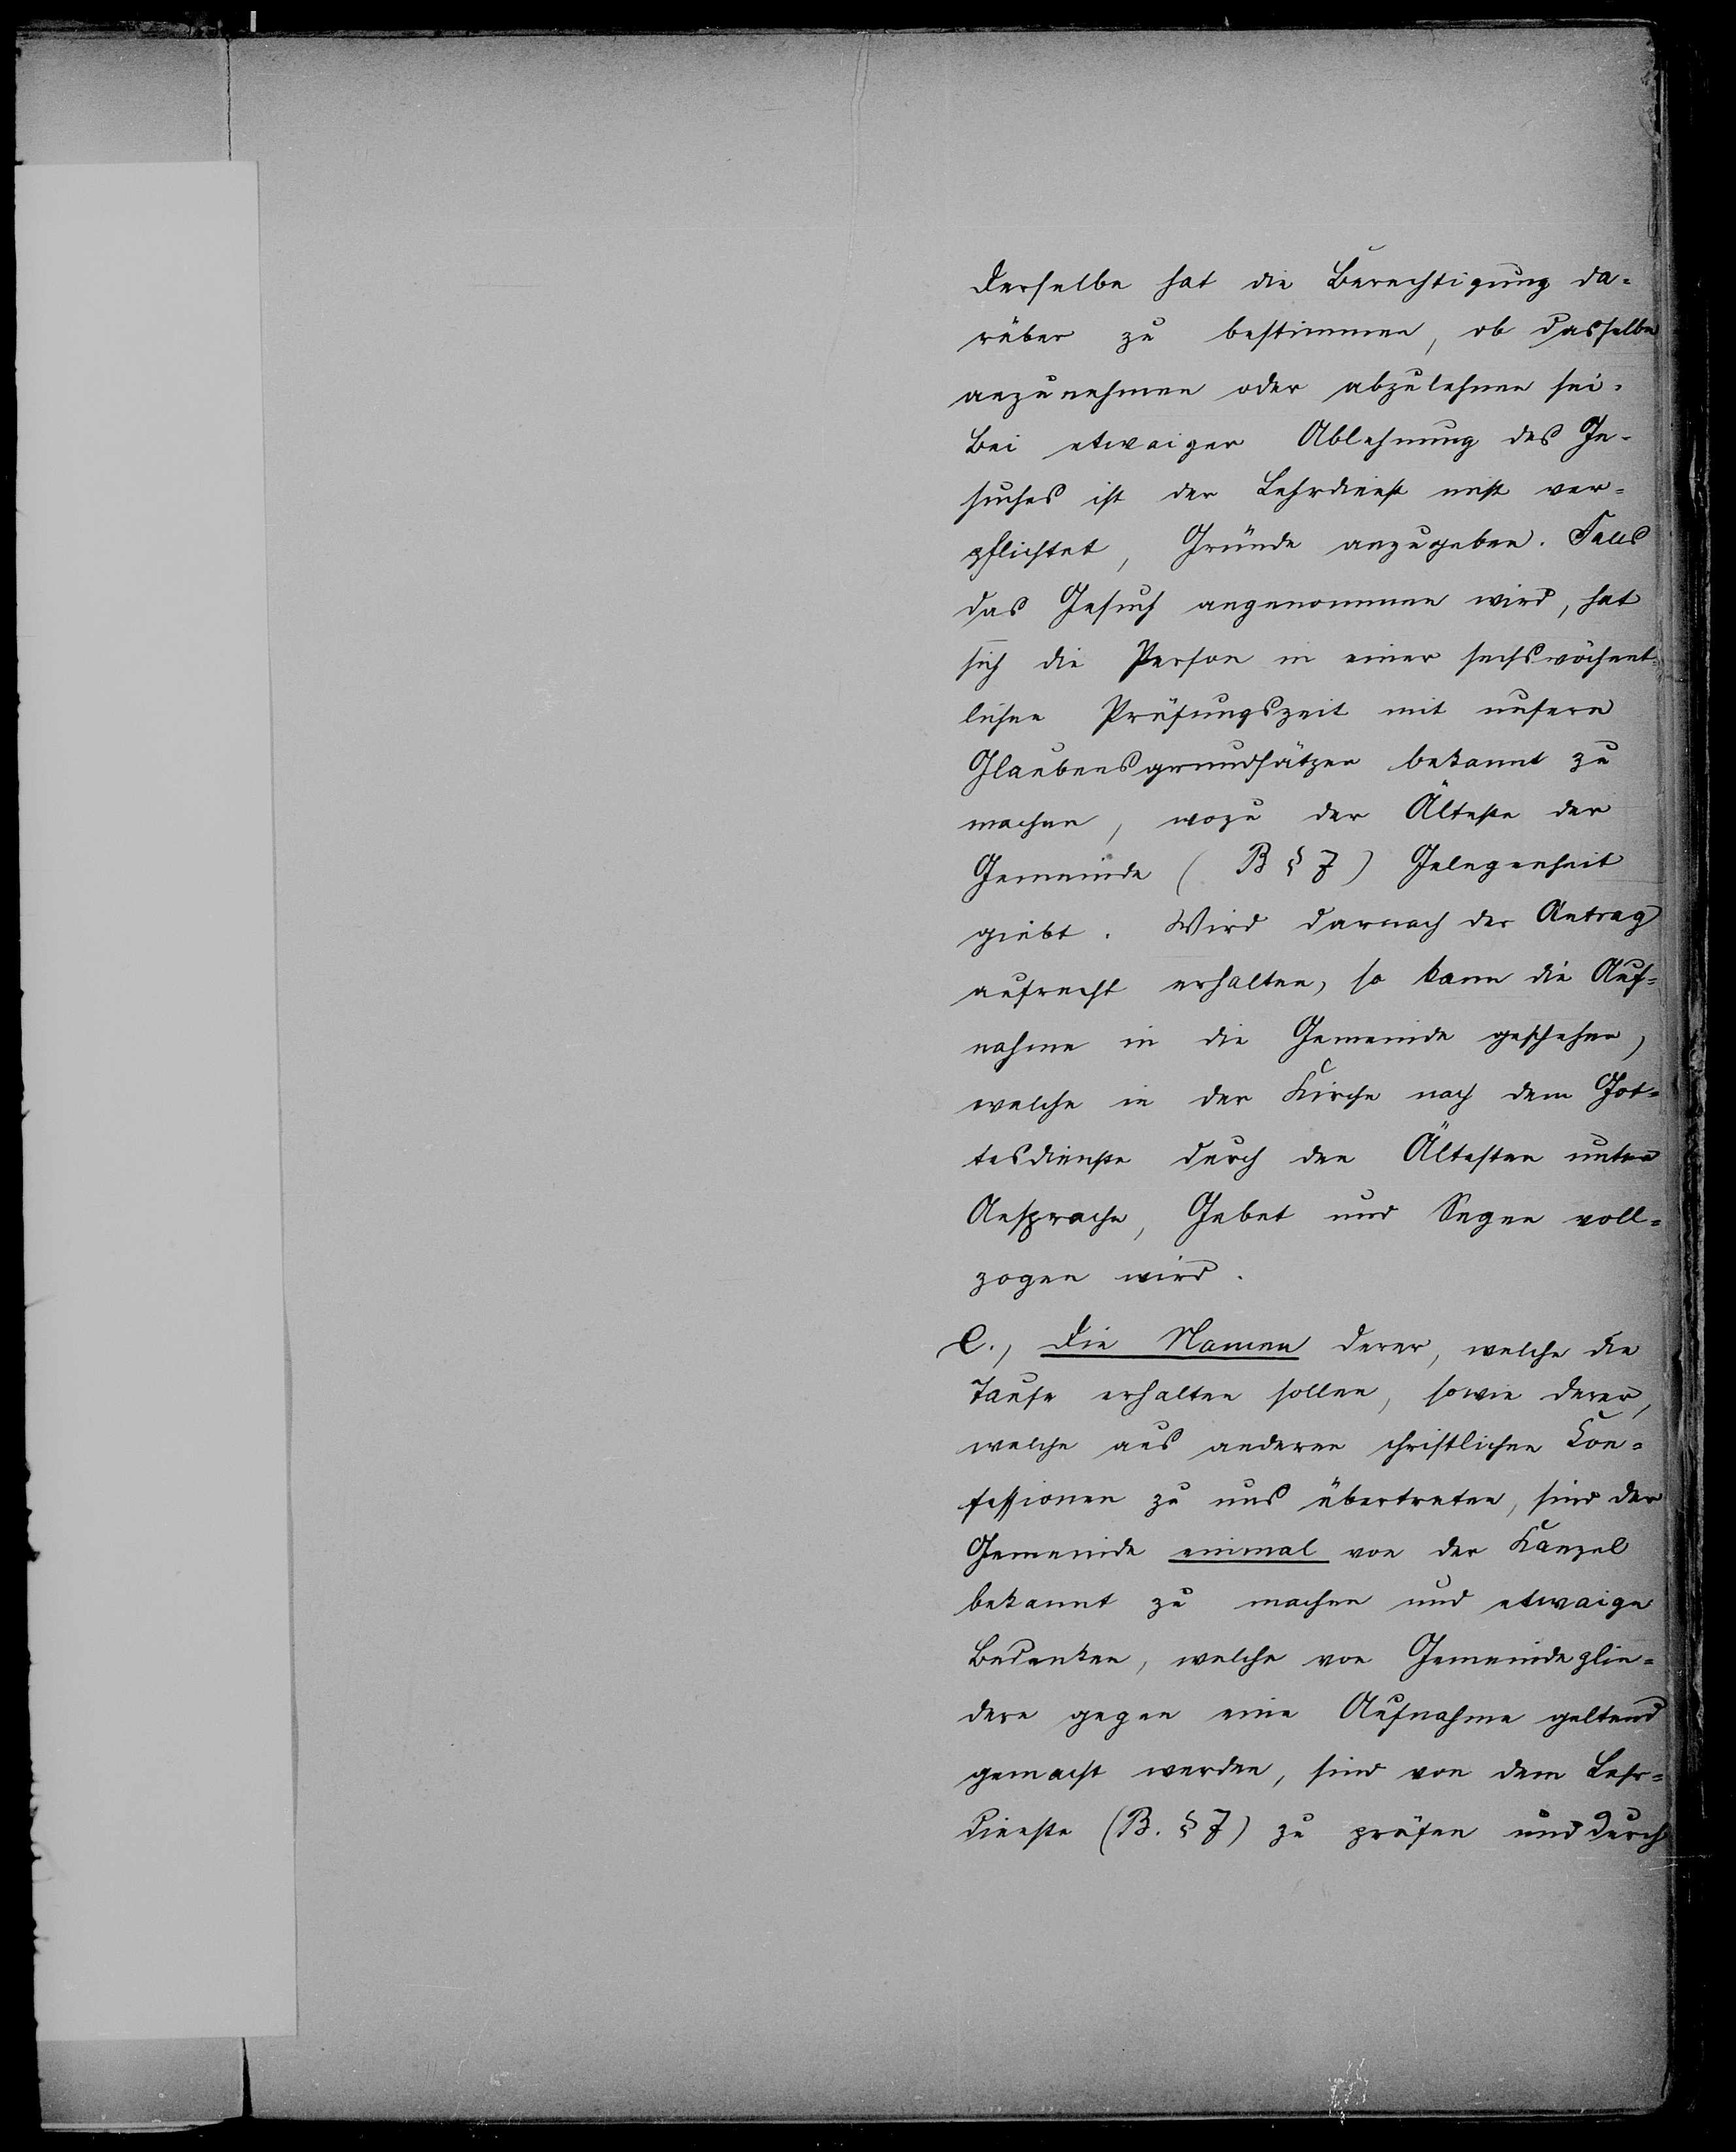 Derselbe hat die Berechtigung da-
rüber zu bestimmen, ob dasselbe
anzunehmen oder abzulehnen sei.
Bei etwaiger Ablehnung des Ge-
suches ist der Lehrdienst nicht ver-
pflichtet, Gründe anzugeben. Falls
das Gesuch angenommen wird, hat
sich die Person in einer sechswöchent-
lichen Prüfungszeit mit unsern
Glaubensgrundsätzen bekannt zu
machen, wozu der Älteste der
Gemeinde (B § 7) Gelegenheit
giebt. Wird darnach der Antrag
aufrecht erhalten, so kann die Auf-
nahme in die Gemeinde geschehen,
welche in der Kirche nach dem Got-
tesdienste durch den Ältesten unter
Ansprache, Gebet und Segen voll-
zogen wird.
C., Die Namen derer, welche die
Taufe erhalten sollen, sowie derer,
welche aus anderen christlichen Con-
fessionen zu uns übertreten, sind der
Gemeinde einmal von der Kanzel
bekannt zu machen und etwaige
Bedenken, welche von Gemeindeglie-
dern gegen eine Aufnahme geltend
gemacht werden, sind von dem Lehr-
dienste (B. § 7) zu prüfen und durch